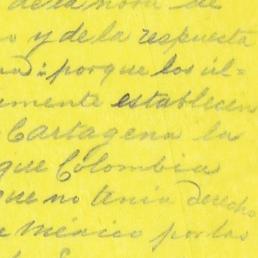 de la nota de
o y de la respuesta
porque los úl=
amente establecen
Cartagena la
que Colombia
que no tenía derecho
México por las